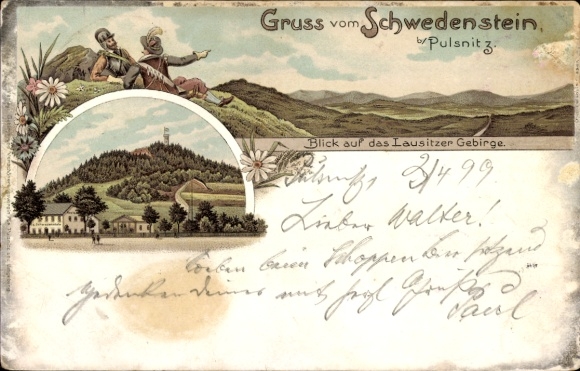 Gruss vom Schwedenstein,
b/Pulsnitz.
Blick auf das Lausitzer Gebirge.
Pulsnitz, 2/4 99
Lieber Walter!
Soeben beim Schoppen
Gedenken Deiner mit Grüße
Paul